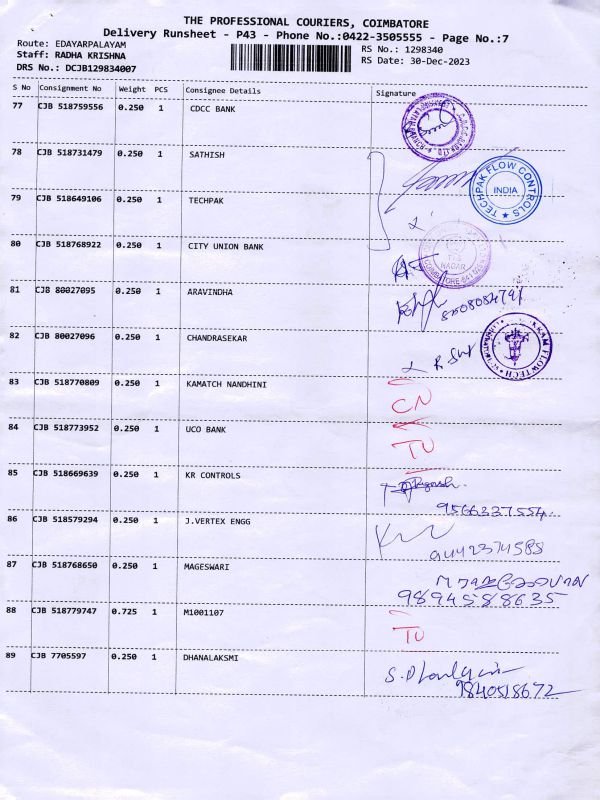 THE PROFESSIONAL COURIERS, COIMBATORE
Delivery Runsheet - P43 - Phone No.:0422-3505555 - Page No.:7
Route: EDAYARPALAYAM
RS No.: 1298340
Staff: RADHA KRISHNA
RS Date: 30-Dec-2023
DRS No.: DCJB129834007
S No Consignment No Weight PCS Consignee Details Signature
77 CJB 518759556 0.250 1 CDCC BANK
78 CJB 518731479 0.250 1 SATHISH
TECHPAK FLOW CONTROLS
INDIA
79 CJB 518649106 0.250 1 TECHPAK
80 CJB 518768922 0.250 1 CITY UNION BANK
NAGAR
81 CJB 80027095 0.250 1 ARAVINDHA
82 CJB 80027096 0.250 1 CHANDRASEKAR
83 CJB 518770809 0.250 1 KAMATCH NANDHINI
CN
84 CJB 518773952 0.250 1 UCO BANK
TU
85 CJB 518669639 0.250 1 KR CONTROLS
9566337554
86 CJB 518579294 0.250 1 J.VERTEX ENGG
9442374588
87 CJB 518768650 0.250 1 MAGESWARI
9894588635
88 CJB 518779747 0.725 1 M1001107
TU
89 CJB 7705597 0.250 1 DHANALAKSMI
9840518672